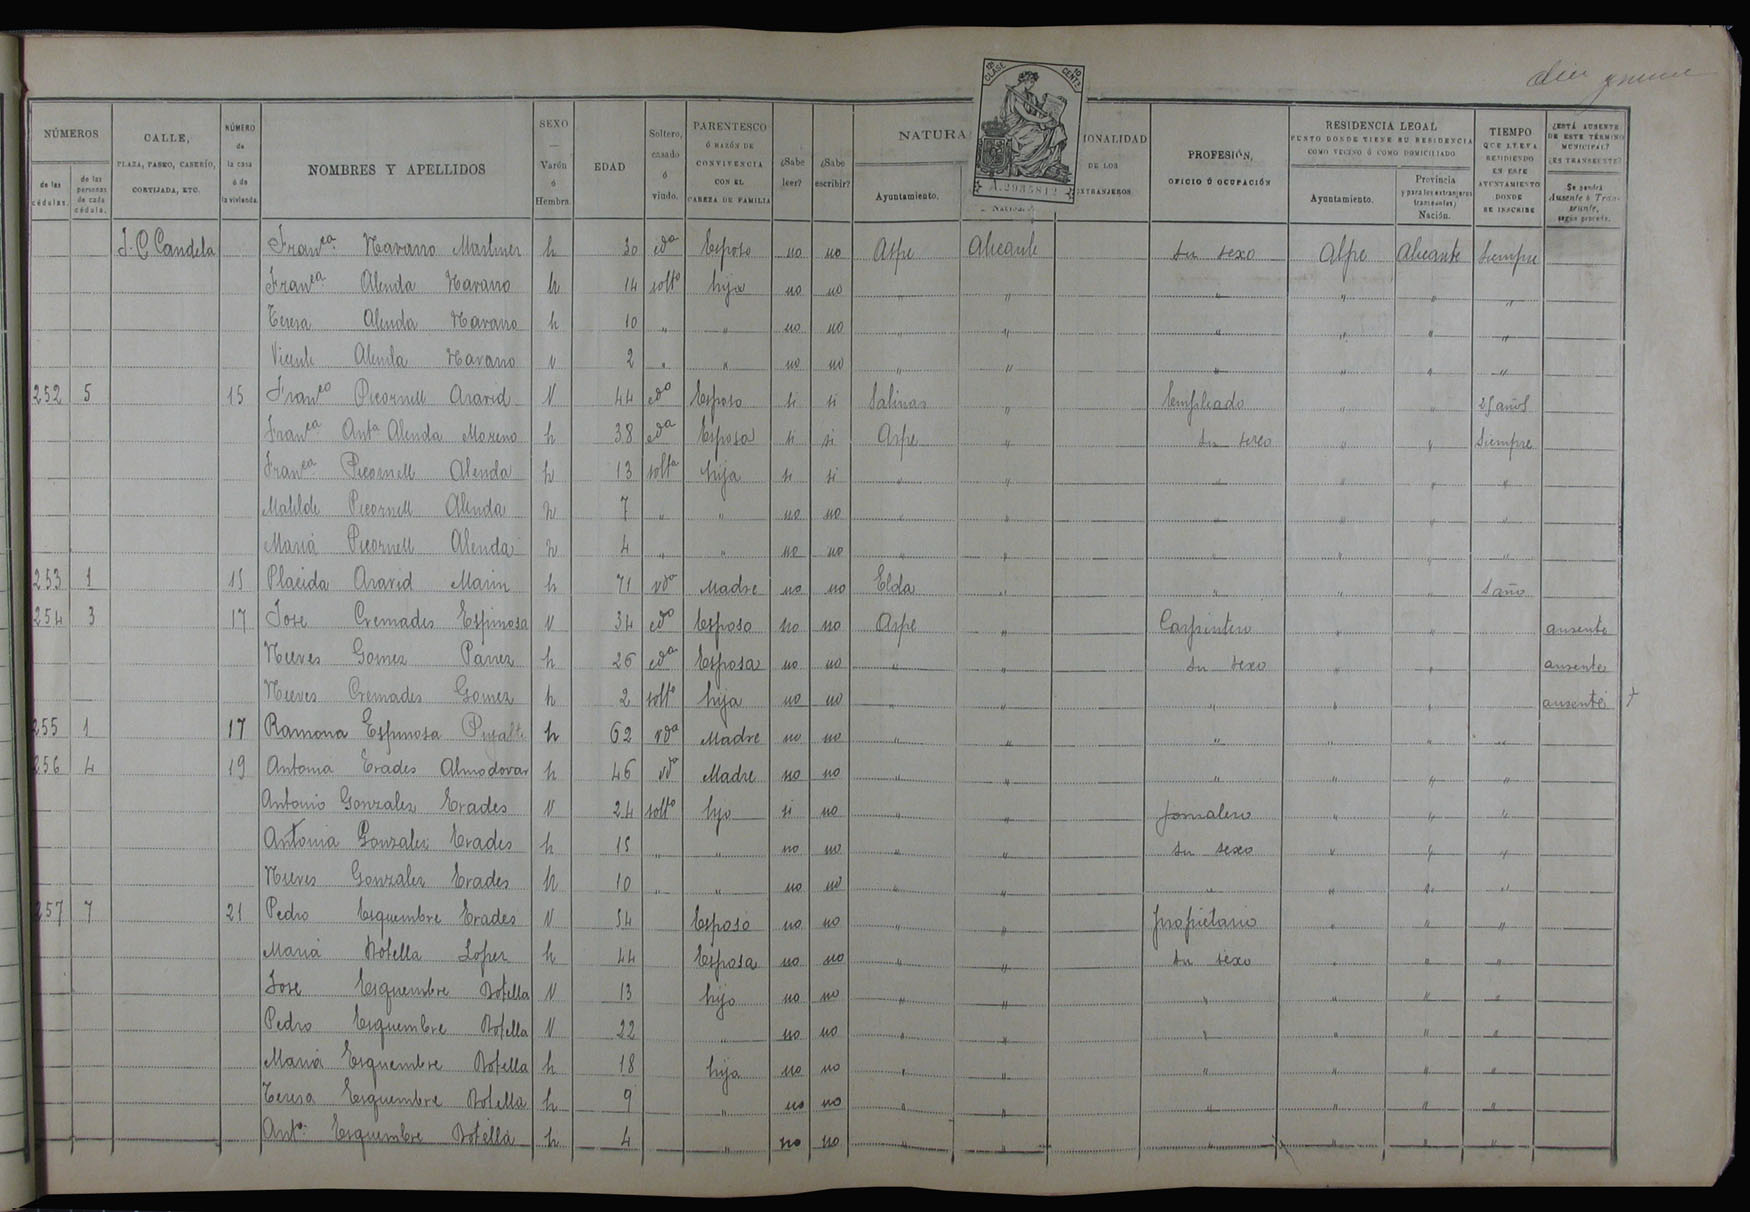 NÚMEROS de las cédulas. de las personas de cada cédula. CALLE, PLAZA, PASEO, CASERÍO, CORTIJADA, ETC. NÚMERO de la casa ó de la vivienda. NOMBRES Y APELLIDOS SEXO — Varón ó Hembra. EDAD Soltero, casado ó viudo. PARENTESCO Ó RAZÓN DE CONVIVENCIA CON EL CABEZA DE FAMILIA ¿Sabe leer? ¿Sabe escribir? NATURA Ayuntamiento. IONALIDAD DE LOS EXTRANJEROS PROFESIÓN, OFICIO Ó OCUPACIÓN RESIDENCIA LEGAL PUNTO DONDE TIENE SU RESIDENCIA COMO VECINO Ó COMO DOMICILIADO Ayuntamiento. Provincia y para los extranjeros transeuntes, Nación. TIEMPO QUE LLEVA RESIDIENDO EN ESTE AYUNTAMIENTO DONDE SE INSCRIBE ¿ESTÁ AUSENTE DE ESTE TÉRMINO MUNICIPAL? ¿ES TRANSEUNTE? Se pondrá Ausente ó Transeunte, según proceda.
CLASE 10 CENTS
A.2985812
J. C Candela Franca Navarro Martinez h 30 cda Esposo no no Aspe Alicante su sexo Aspe Alicante Siempre
Franca Alenda Navarro h 14 solto hija no no " " " " " "
Teresa Alenda Navarro h 10 " " no no " " " " " "
Vicente Alenda Navarro v 2 " " no no " " " " " "
252 5 15 Franco Picornell Aravid V 44 cdo Esposo si si Salinas " Empleado " " 25 años
Franca Anta Alenda Moreno h 38 cda Esposa si si Aspe " su sexo " " Siempre
Franca Picornell Alenda h 13 solta hija si si " " " " " "
Matilde Picornell Alenda h 7 " " no no " " " " " "
Maria Picornell Alenda h 4 " " no no " " " " " "
253 1 15 Placida Aravid Marin h 71 vda Madre no no Elda " " " " 1 año
254 3 17 Jose Cremades Espinosa V 34 cdo Esposo no no Aspe " Carpintero " " ausente
Nieves Gomez Parrez h 26 cda Esposa no no " " su sexo " " ausente
Nieves Cremades Gomez h 2 solto hija no no " " " " " ausente
255 1 17 Ramona Espinosa Pujalte h 62 vda Madre no no " " " " " "
256 4 19 Antonia Erades Almodovar h 46 vda Madre no no " " " " " "
Antonio Gonzalez Erades V 24 solto hijo si no " " Jornalero " " "
Antonia Gonzalez Erades h 15 " " no no " " su sexo " " "
Nieves Gonzalez Erades h 10 " " no no " " " " " "
257 7 21 Pedro Esquembre Erades V 54 Esposo no no " " propietario " " "
Maria Botella Lopez h 44 Esposa no no " " su sexo " " "
Jose Esquembre Botella V 13 hijo no no " " " " " "
Pedro Esquembre Botella V 22 " no no " " " " " "
Maria Esquembre Botella h 18 hija no no " " " " " "
Teresa Esquembre Botella h 9 " no no " " " " " "
Anta Esquembre Botella h 4 " no no " " " " " "